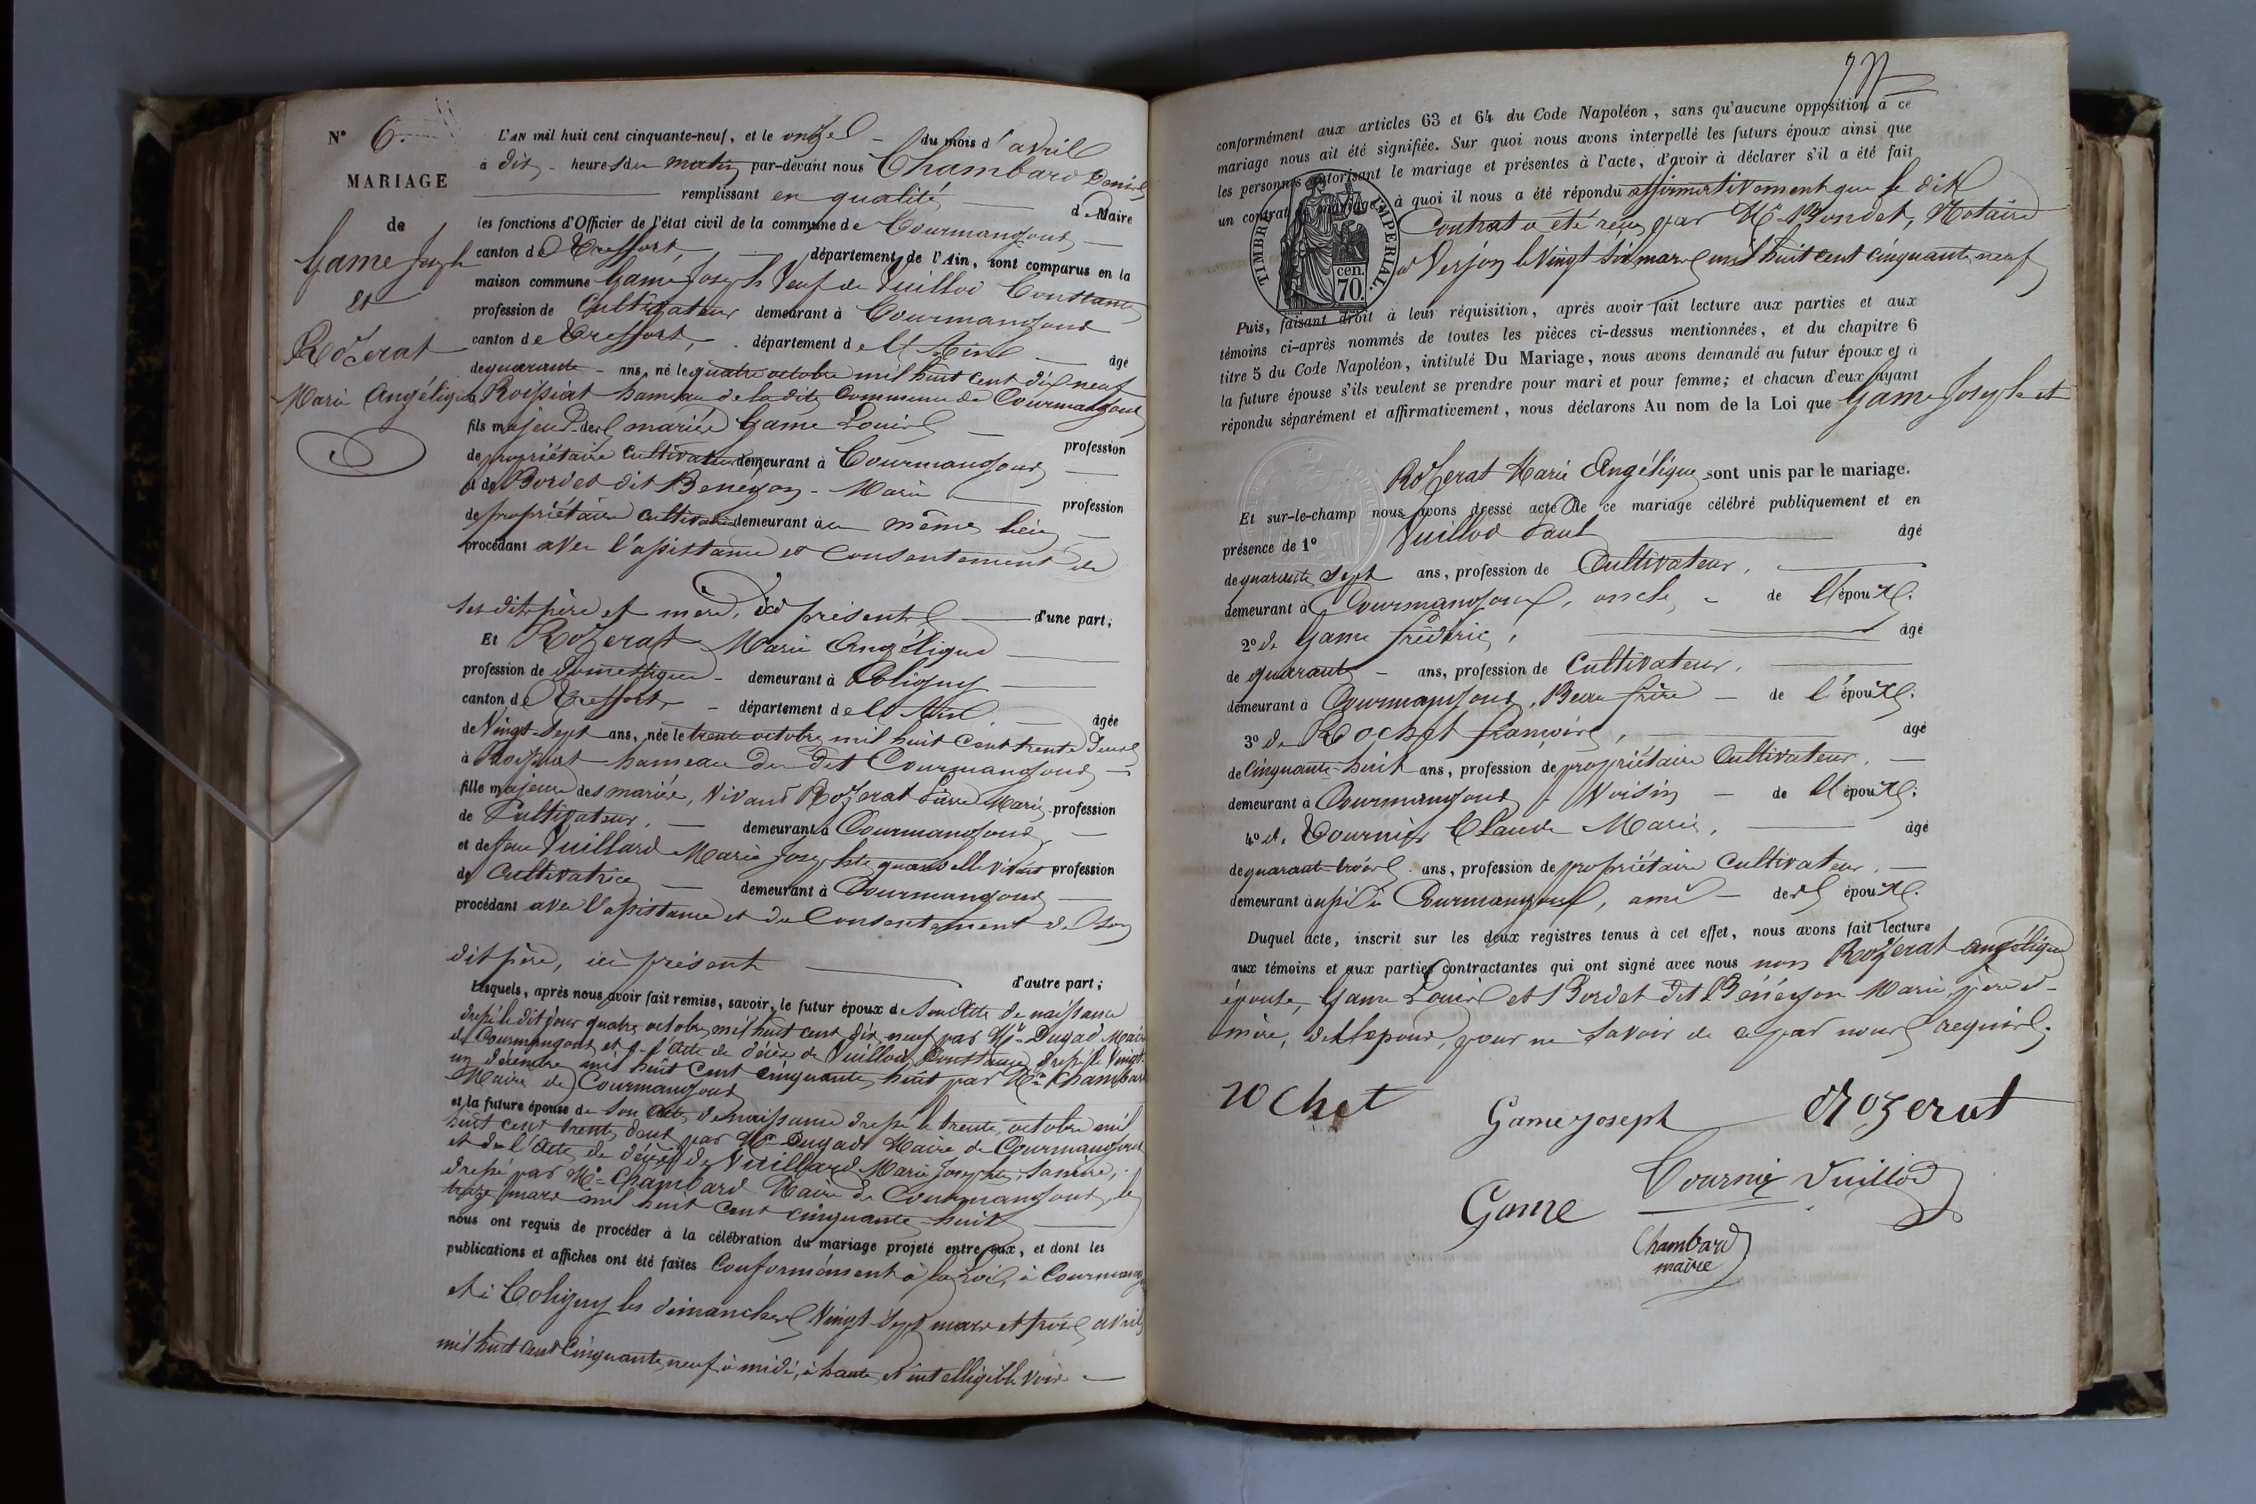 N° 6.
MARIAGE
de
Game Joseph
et
Rozerat
Marie Angélique
L'AN mil huit cent cinquante-neuf, et le onze du mois d'avril
à dix heures du matin par-devant nous Chambard Denis
remplissant en qualité de Maire
les fonctions d'Officier de l'état civil de la commune de Courmangoux
canton de Treffort, département de l'Ain, sont comparus en la
maison commune Game Joseph Veuf de Vuillod Constance
profession de Cultivateur demeurant à Courmangoux
canton de Treffort, département de l'Ain âgé
de quarante ans, né le quatre octobre mil huit cent dix neuf
à Roissiat hameau de la dite Commune de Courmangoux
fils majeur des mariés Game Louis
profession
de propriétaire cultivateur demeurant à Courmangoux
et de Bordet dit Benéyon Marie
profession
de propriétaire cultivatrice demeurant au même lieu
procédant avec l'assistance et consentement de
ses dits père et mère, ici présents d'une part;
Et Rozerat Marie Angélique
profession de Domestique demeurant à Coligny
canton de Treffort, département de l'Ain. âgée
de Vingt-Sept ans, née le trente octobre mil huit cent trente deux
à Roissiat hameau du dit Courmangoux
fille majeure des mariés, vivant Rozerat Pierre Marie profession
de Cultivateur, demeurant à Courmangoux,
et de feue Vuillard Marie Josephte quand elle vivait profession
de Cultivatrice demeurant à Courmangoux
procédant avec l'assistance et du Consentement de son
dit père, ici présent d'autre part;
Lesquels, après nous avoir fait remise, savoir, le futur époux de son acte de naissance
dressé le dit jour quatre octobre mil huit cent dix neuf par Mr Dugad Maire
de Courmangoux et de l'acte de décès de Vuillod Constance dressé le Vingt
un décembre mil huit cent cinquante huit par Mr Chambard
Maire de Courmangoux
et la future épouse de son acte de naissance dressé le trente octobre mil
huit cent trente deux par Mr Dugad Maire de Courmangoux
et de l'acte de décès de Vuillard Marie Josephte, sa mère,
dressé par Mr Chambard Maire de Courmangoux, le
treize mars mil huit cent cinquante-huit
nous ont requis de procéder à la célébration du mariage projeté entre eux, et dont les
publications et affiches ont été faites Conformément à la Loi, à Courmangoux
et à Coligny les dimanches Vingt-Sept mars et trois avril
mil huit cent cinquante neuf à midi, à haute et intelligible voix
conformément aux articles 63 et 64 du Code Napoléon, sans qu'aucune opposition à ce
mariage nous ait été signifiée. Sur quoi nous avons interpellé les futurs époux ainsi que
les personnes autorisant le mariage et présentes à l'acte, d'avoir à déclarer s'il a été fait
un contrat de mariage, à quoi il nous a été répondu affirmativement que le dit
Contrat a été reçu par Me Bondet, Notaire
à Verjon le Vingt six mars mil huit cent cinquante neuf
TIMBRE IMPERIAL.
cen.
70.
Puis, faisant droit à leur réquisition, après avoir fait lecture aux parties et aux
témoins ci-après nommés de toutes les pièces ci-dessus mentionnées, et du chapitre 6
titre 5 du Code Napoléon, intitulé Du Mariage, nous avons demandé au futur époux et à
la future épouse s'ils veulent se prendre pour mari et pour femme; et chacun d'eux ayant
répondu séparément et affirmativement, nous déclarons Au nom de la Loi que Game Joseph et
Rozerat Marie Angélique sont unis par le mariage.
Et sur-le-champ nous avons dressé acte de ce mariage célébré publiquement et en
présence de 1° Vuillod Paul âgé
de quarante sept ans, profession de Cultivateur,
demeurant à Courmangoux, oncle, de l'époux.
2° de Game Frédéric, âgé
de quarante ans, profession de Cultivateur.
demeurant à Courmangoux, Beau frère de l'époux.
3° de Rochet François, âgé
de Cinquante-huit ans, profession de propriétaire Cultivateur,
demeurant à Courmangoux, Voisin de l'époux;
4° de Tournier Claude Marie, âgé
de quarante-trois ans, profession de propriétaire Cultivateur,
demeurant aussi à Courmangoux, ami des époux.
Duquel acte, inscrit sur les deux registres tenus à cet effet, nous avons fait lecture
aux témoins et aux parties contractantes qui ont signé avec nous non Rozerat Angélique
épouse, Game Louis et Bordet dit Bénéyon Marie, père et
mère, de l'époux, pour ne savoir de ce par nous requis.
rochet
Game joseph
Rozerat
Game
Tournie
Vuillod
Chambard
maire